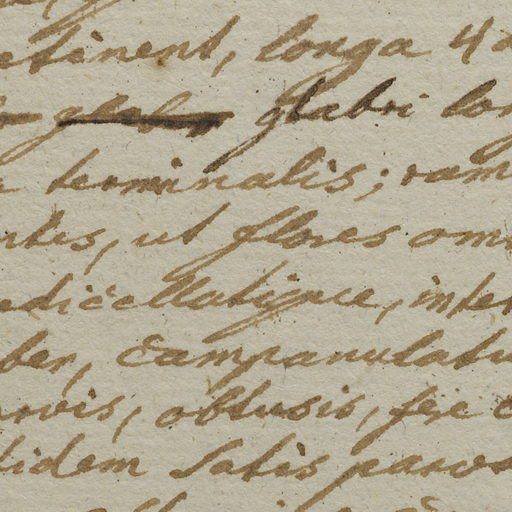 tinent, longa 4
glabri lon
terminalis; ram
ntes, ut flores omn
edicellatique, inter
ber, Campanulatu
arvis, obtusis, fere c
tidem satis parvs